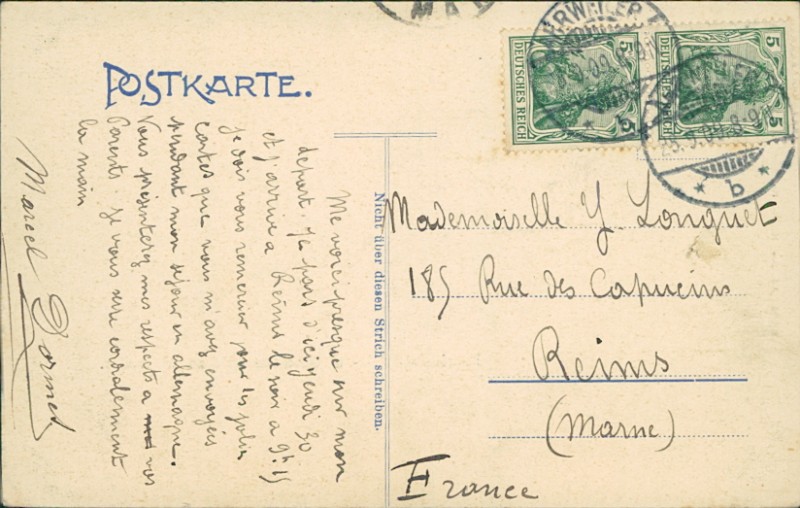 POSTKARTE.
Me voici presque sur mon
départ. Je pars d'ici jeudi 30
et j'arrive à Reims le soir à 9h.15
Je vais vous remercier pour les jolies
cartes que vous m'avez envoyées
pendant mon séjour en allemagne.
Vous présenterez mes respects à vos
Parents. Je vous serre cordialement
la main
Marcel
Nicht über diesen Strich schreiben.
DEUTSCHES REICH
5
5
DEUTSCHES REICH
5
5
8-9N
* b *
Mademoiselle Y. Longuet
185 Rue des Capucins
Reims
(Marne)
France